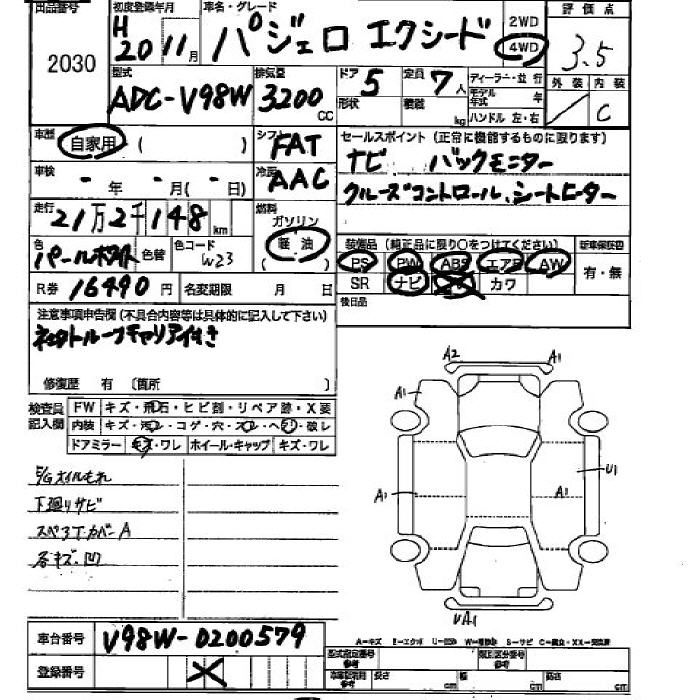 出品番号 初度登録年月 車名・グレード 2WD 評価点
2030 H20 11月 パジェロ エクシード 4WD 3.5
型式 排気量 ドア 5 定員 7人 ディーラー・並行 外装 内装
ADC-V98W 3200cc 形状 積載 kg モデル年式 年 C
ハンドル 左・右
車歴 自家用 ( ) シフト FAT セールスポイント (正常に機能するものに限ります)
車検 - 年 - 月( - 日) 冷房 AAC ナビ バックモニター
クルーズコントロール、シートヒーター
走行 21万2千148km 燃料 ガソリン 軽油 ( )
装備品 (純正品に限り○をつけてください) 新車保証書
色 パールホワイト 色替 色コード W23 PS PW ABS エアB AW 有・無
R券 16490円 名変期限 月 日 SR ナビ カワ
後日品
注意事項申告欄 (不具合内容等は具体的に記入して下さい)
ルーフキャリア付き
修復歴 有 (箇所 )
検査員記入欄 FW キズ・飛石・ヒビ割・リペア跡・X要
内装 キズ・汚レ・コゲ・穴・スレ・ヘリ・破レ
ドアミラー キズ・ワレ ホイール・キャップ キズ・ワレ
E/Gオイルもれ
下廻りサビ
スペアT.カバーA
各キズ・凹
A2 A1
A1
A1 A1 U1
UA1
車台番号 V98W-0200579
登録番号 X
A-キズ U-凹み W-補修跡 S-サビ C-腐食
型式指定番号 参考 類別区分番号 参考
長さ cm 幅 cm 高さ cm